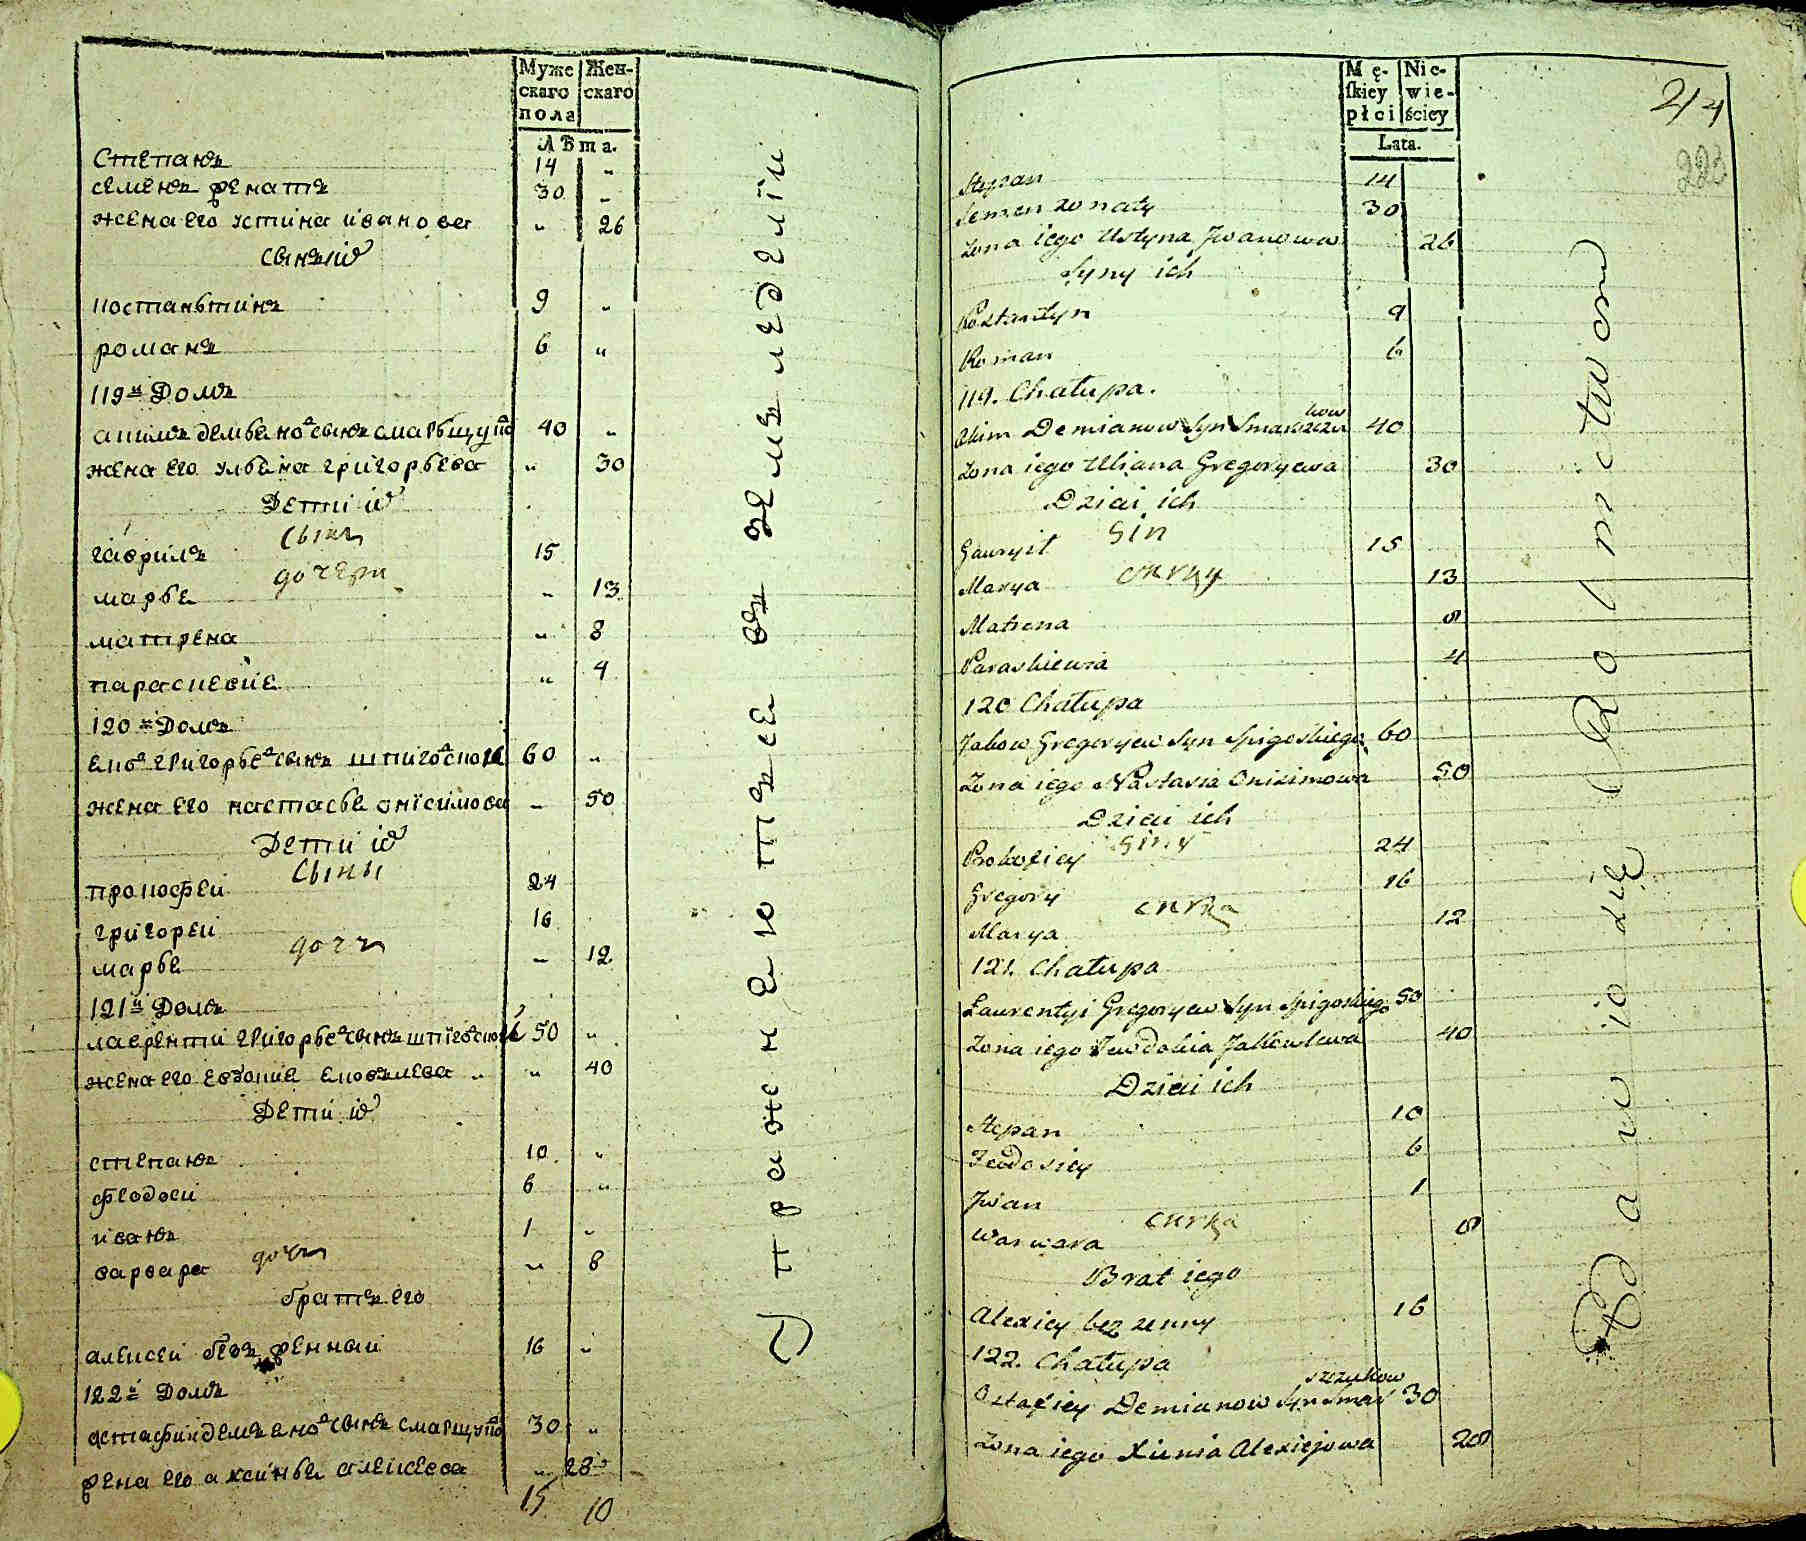 Муже Жен-
скаго скаго
пола
Лѣта.
Степанъ 14 „
семенъ женатъ 30 „
жена его устина иванова „ 26
сынъ их
костаньтинъ 9 „
романъ 6 „
119й Домъ
акимъ демьяновъ сынъ смарьщуков 40 „
жена его ульяна григорьева „ 30
Дети их
сынъ
гаврилъ 15
дочери
марья „ 13
матрена „ 8
парасковия „ 4
120й Домъ
яков григорьев сынъ шпиговского 60 „
жена его настасья онісимова „ 50
Дети их
сыны
прокофей 24
григорей 16
дочь
марья „ 12
121й Домъ
лаврентий григорьев сынъ шпіговского 50 „
жена его евдокия яковлева „ „ 40
Дети их
степанъ 10 „
феодоси 6 „
иванъ 1 „
дочь
варвара „ 8
братъ его
алексей безъ женный 16 „
122й Домъ
астафий демъянов сынъ смарщуков 30 „
жена его аксинья алексеева „ 28
15 10
Упражняются въ земледелїи
Mę- Nie-
skiey wie-
płci ściey
Lata.
214
223
Stepan 14
Semen zonaty 30
Zona iego Ustyna Jwanowa 26
Syny ich
Kostantyn 9
Roman 6
119. Chałupa.
kow
Akim Demianow Syn Smarszczu 40
Zona iego Uliana Gregoryewa 30
Dzieci ich
Sin
Gauryił 15
curky
Marya 13
Matrona 8
Paraskiewia 4
120 Chałupa
Jakow Gregoryew Syn Spigoskiego 60
Zona iego Nastasia Onisimowa 50
Dzieci ich
Siny
Prokofiey 24
Gregory 16
curka
Marya 12
121. Chałupa
Laurentyi Gregoryew Syn Spigoskiego 50
Zona iego Jewdokia Jakowlewa 40
Dzieci ich
Stepan 10
Feodosiey 6
Jwan 1
curka
Warwara 8
Brat iego
Alexiey bez zenny 16
122. Chałupa
szczukow
Ostafiey Demianow Syn Smar 30
Zona iego Xienia Alexiejowa 28
Bawią się Rolnictwom